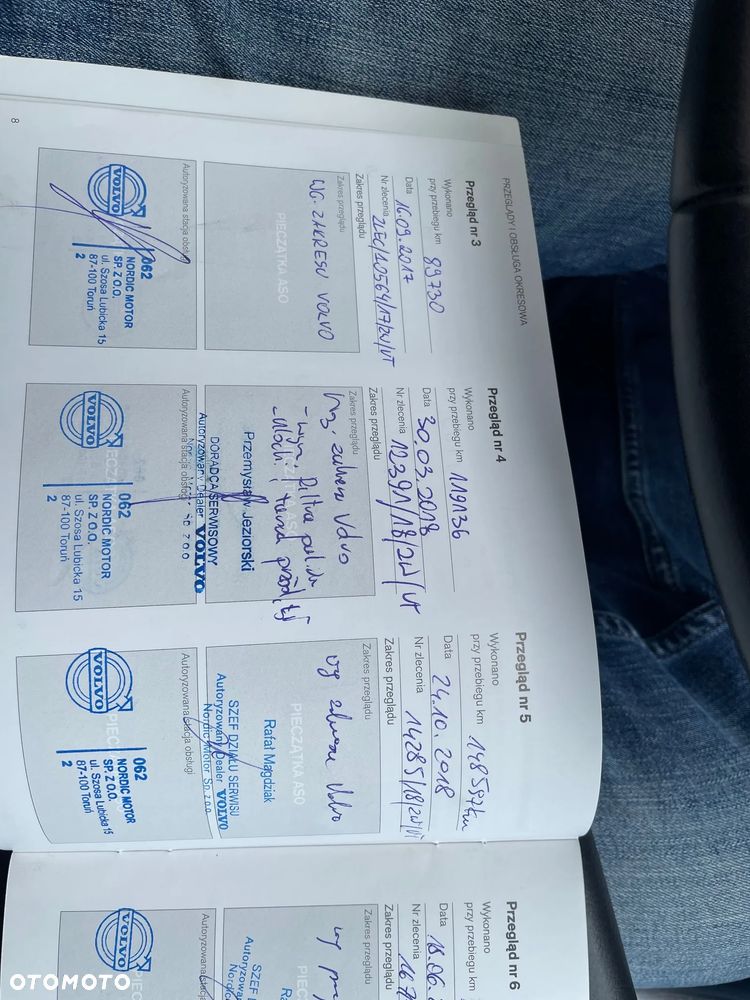 PRZEGLĄDY I OBSŁUGA OKRESOWA
Przegląd nr 3
Wykonano
przy przebiegu km 89730
Data 16.09.2017
Nr zlecenia ZLEC/10564/17/2W/VT
Zakres przeglądu
Zakres przeglądu
WG. ZAKRESU VOLVO
PIECZĄTKA ASO
Autoryzowana stacja obsługi
VOLVO
062
NORDIC MOTOR
SP. Z O.O.
ul. Szosa Lubicka 15
87-100 Toruń
2
Przegląd nr 4
Wykonano
przy przebiegu km 119136
Data 30.03.2018
Nr zlecenia 12391/18/2W/VT
Zakres przeglądu
Zakres przeglądu
Wg. zakresu Volvo
- wym. filtra
- klocki i tarcze przód
Przemysław Jeziorski
DORADCA SERWISOWY
Autoryzowany Dealer VOLVO
Autoryzowana stacja obsługi
VOLVO
062
NORDIC MOTOR
SP. Z O.O.
ul. Szosa Lubicka 15
87-100 Toruń
2
Przegląd nr 5
Wykonano
przy przebiegu km 148597km
Data 24.10.2018
Nr zlecenia 14285/18/2W/VT
Zakres przeglądu
Zakres przeglądu
wg zakresu Volvo
PIECZĄTKA ASO
Rafał Magdziak
SZEF DZIAŁU SERWISU
Autoryzowany Dealer VOLVO
Nordic Motor Sp. z o.o.
Autoryzowana stacja obsługi
VOLVO
062
NORDIC MOTOR
SP. Z O.O.
ul. Szosa Lubicka 15
87-100 Toruń
2
8
Przegląd nr 6
Wykonano
przy przebiegu km
Data 18.06.
Nr zlecenia 167
Zakres przeglądu
Zakres przeglądu
wg
PIEC
SZEF
Autoryzowa
Nordic
Autoryzowana
VOLVO
OTOMOTO